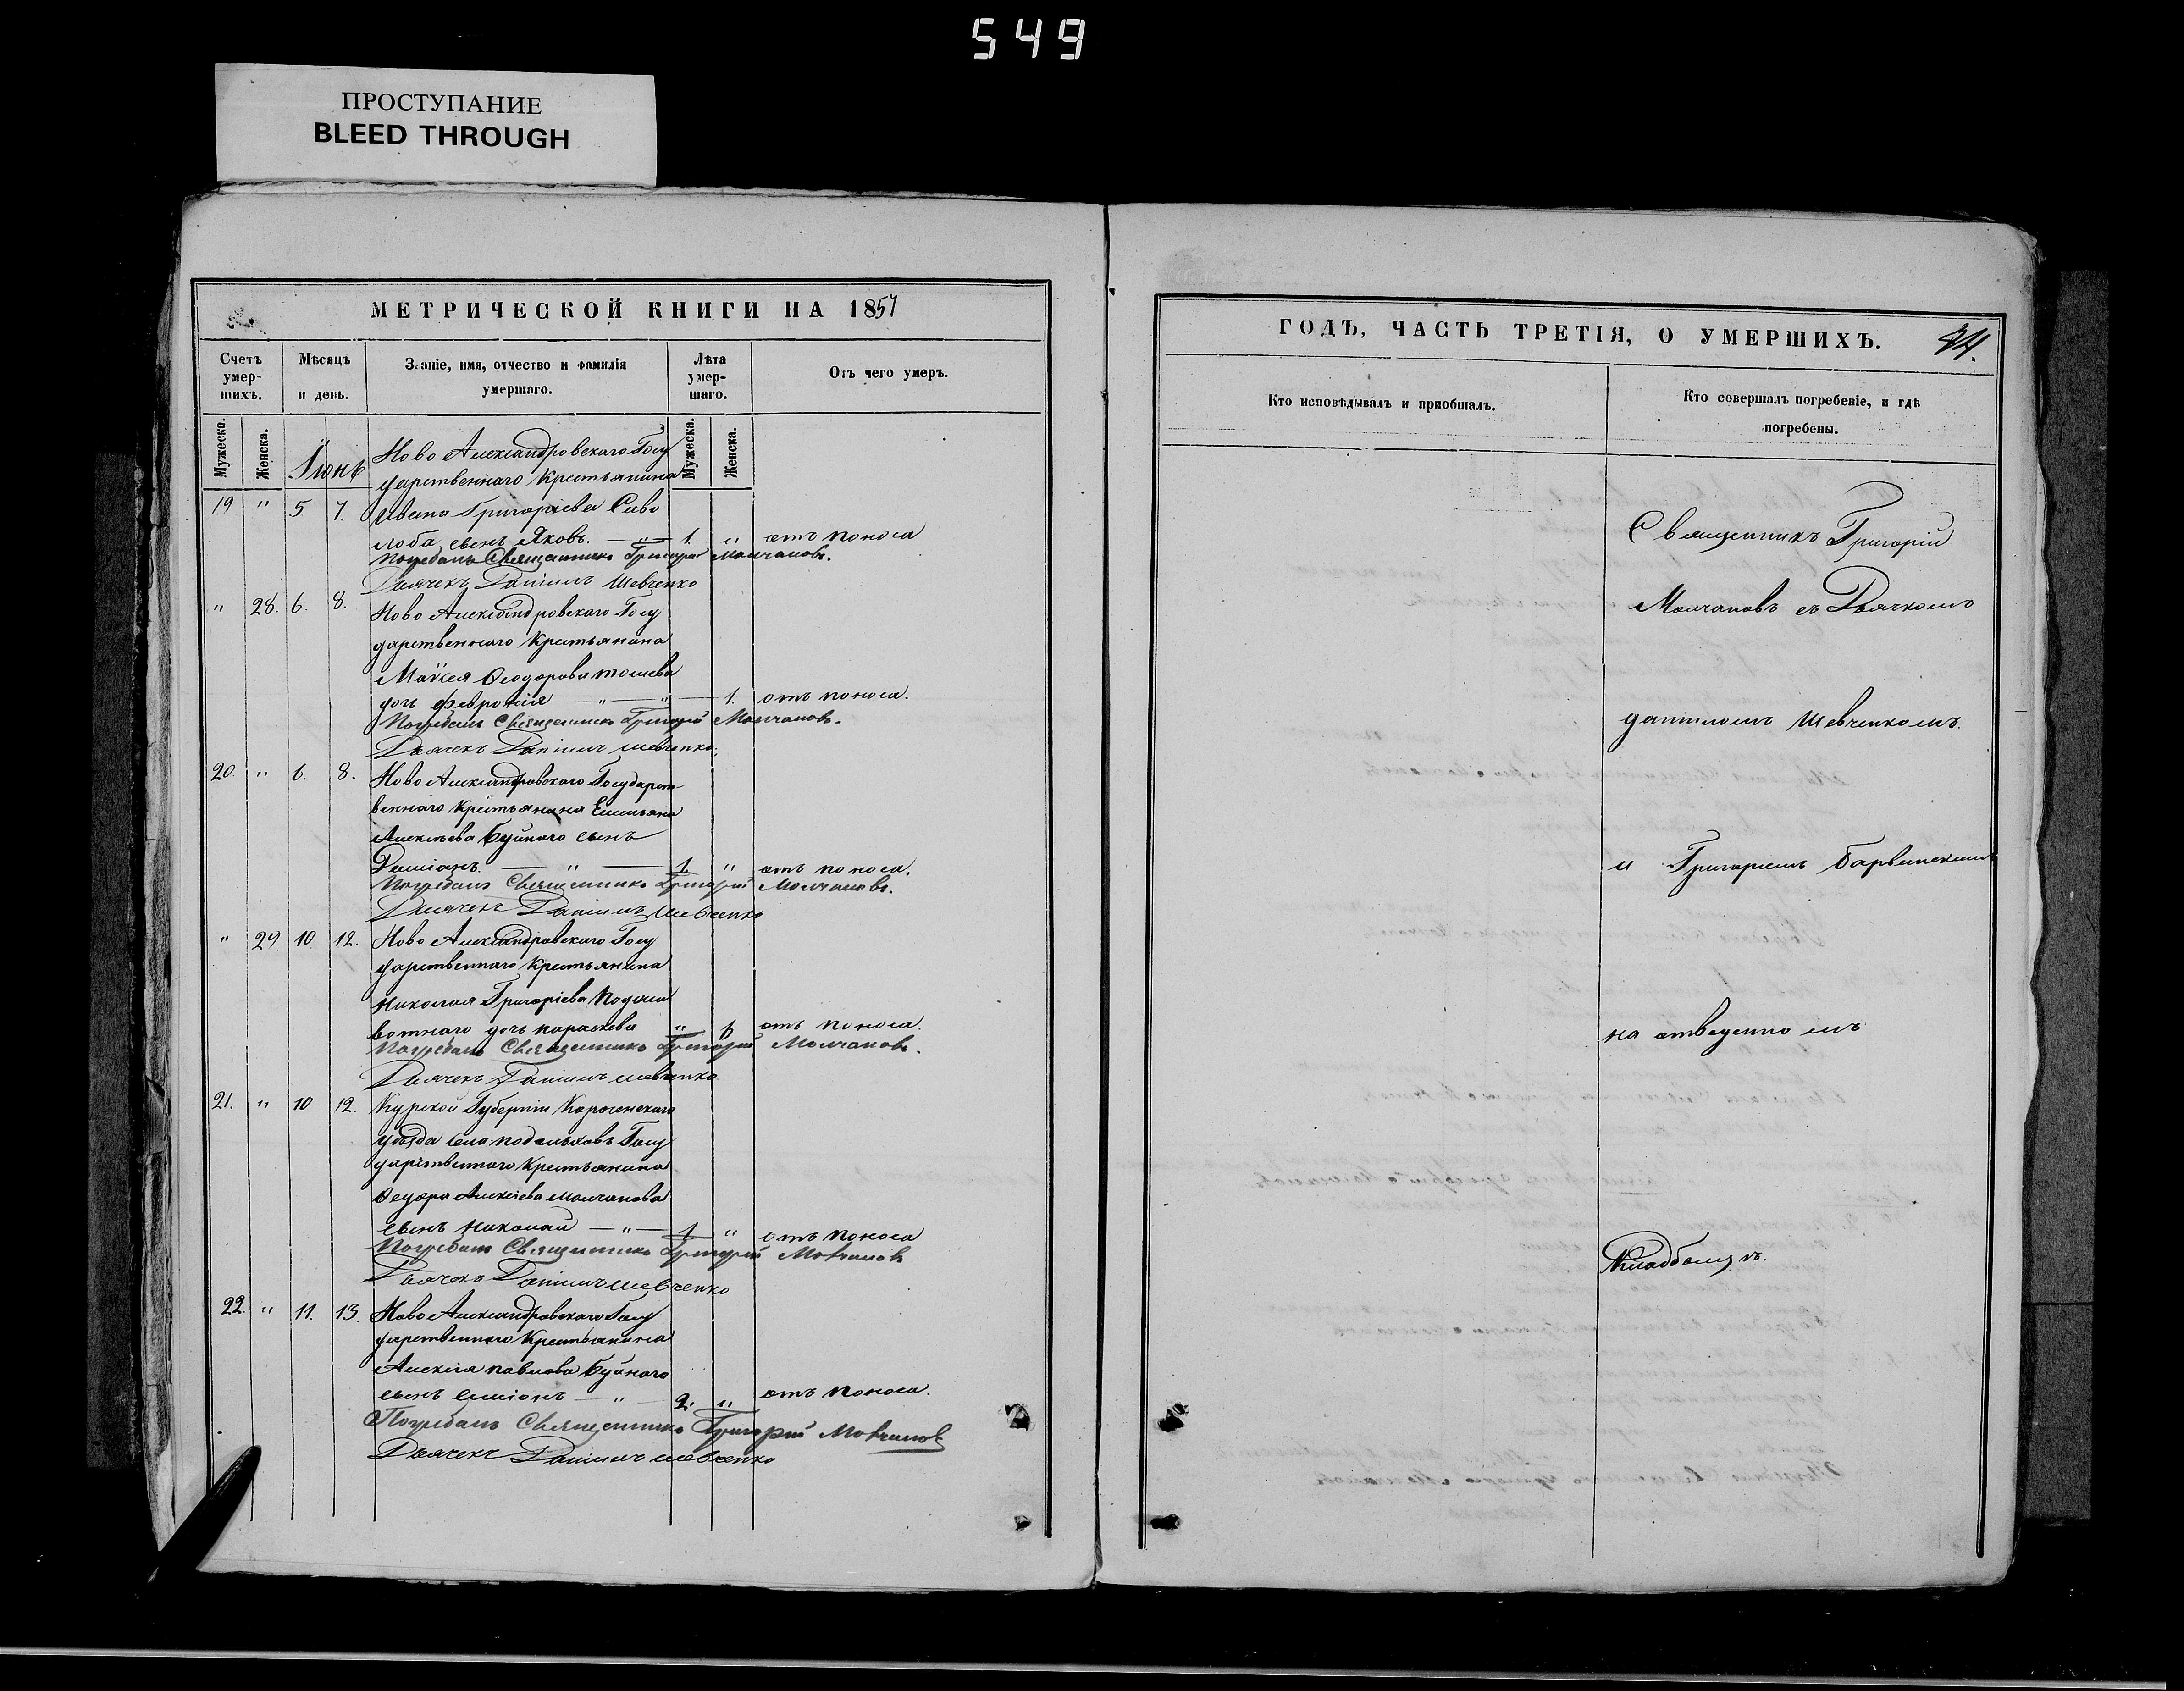 549
ПРОСТУПАНИЕ
BLEED THROUGH
МЕТРИЧЕСКОЙ КНИГИ НА 1857
Счетъ умер-шихъ.
Мѣсяцъ и день.
Званіе, имя, отчество и фамилія умершаго.
Лѣта умер-шаго.
Отъ чего умеръ.
Мужеска.
Женска.
Іюнь
Мужеска.
Женска.
Ново Александровскаго Госу
дарственнаго Крестьянина
19 " 5 7. Ивана Григоріева Сиво
лоба сынъ Яковъ. — " — 1. " отъ поноса
Погребалъ Священникъ Григорій Молчановъ.
Дьячекъ Даніилъ Шевченко
" 28. 6. 8. Ново Александровскаго Госу
дарственнаго Крестьянина
Моѵсея Ѳеодорова
дочь Февронія — " — 1. отъ поноса.
Погребалъ Священникъ Григорій Молчановъ.
Дьячекъ Даніилъ Шевченко.
20. " 6. 8. Ново Александровскаго Государст-
веннаго Крестьянина Емельяна
Алексѣева Буйнаго сынъ
Даміанъ. — " — 1. " отъ поноса.
Погребалъ Священникъ Григорій Молчановъ.
Дьячекъ Даніилъ Шевченко
" 29 10 12. Ново Александровскаго Госу
дарственнаго Крестьянина
Николая Григоріева
дочь Параскева " отъ поноса.
Погребалъ Священникъ Григорій Молчановъ.
Дьячекъ Даніилъ Шевченко
21. " 10 12. Курской Губерніи Короченскаго
уѣзда села Госу
дарственнаго Крестьянина
Ѳедора Алексѣева Молчанова
сынъ Николай — " — 1. " отъ поноса
Погребалъ Священникъ Григорій Молчановъ
Дьячекъ Даніилъ Шевченко
22. " 11. 13. Ново Александровскаго Госу
дарственнаго Крестьянина
Алексѣя Павлова Буйнаго
сынъ — " — 2. " отъ поноса.
Погребалъ Священникъ Григорій Молчановъ
Дьячекъ Даніилъ Шевченко
ГОДЪ, ЧАСТЬ ТРЕТІЯ, О УМЕРШИХЪ.
Кто исповѣдывалъ и пріобщалъ.
Кто совершалъ погребеніе, и гдѣ погребены.
Священникъ Григорій
Молчановъ съ Дьячкомъ
Даніиломъ Шевченкомъ.
и Григоріемъ Барвинскимъ
на отведенномъ
Кладбищѣ.